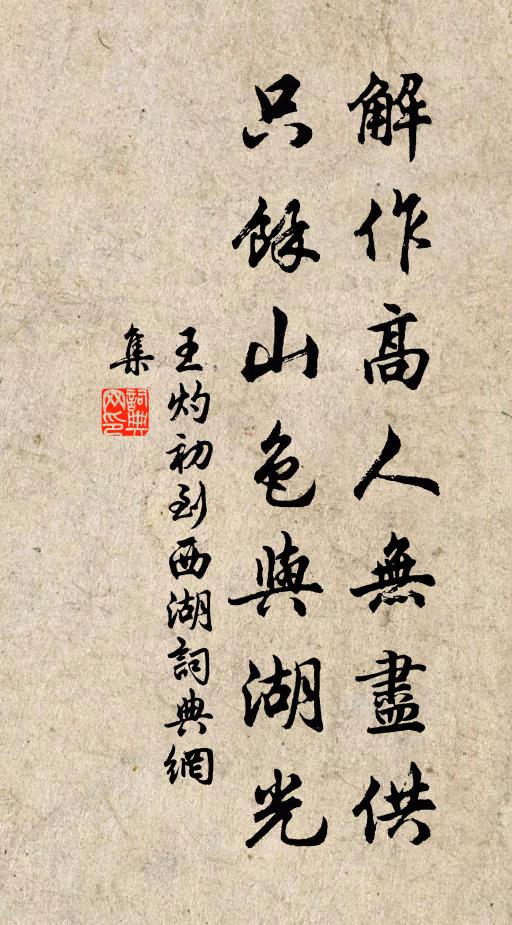 解作高人無盡供
只餘山色與湖光
王灼初到西湖詞典網
集
詞典網印